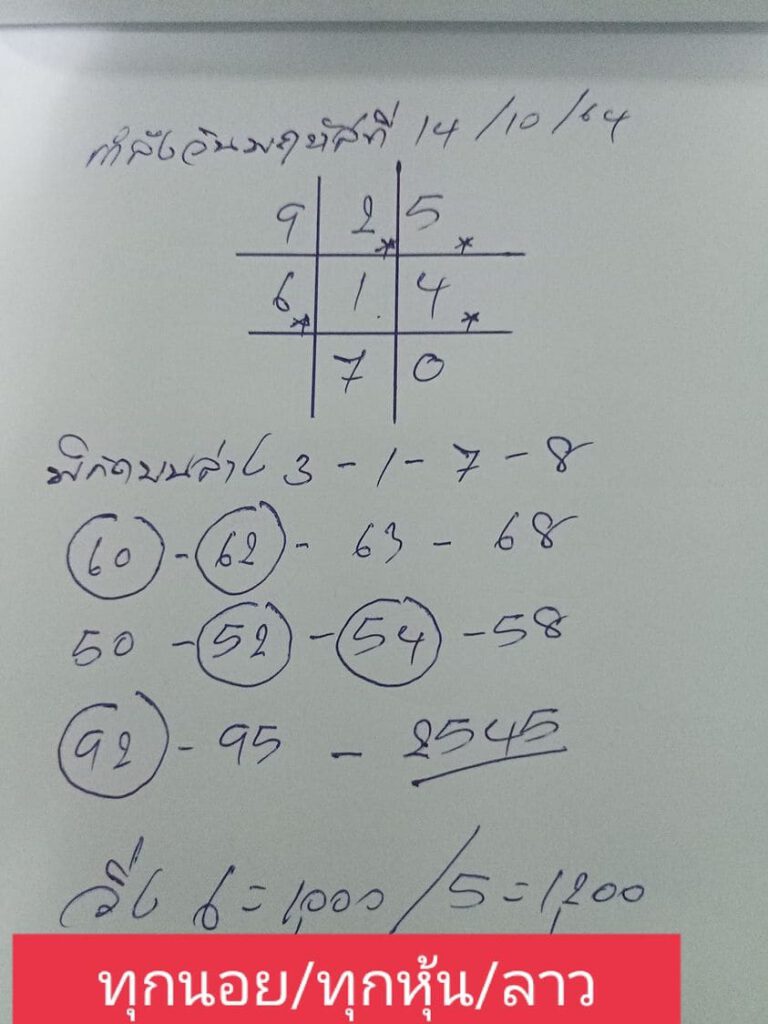 กำลังวันพฤหัสที่ 14/10/64
9 2 5
6 1 4
7 0
พิกัดบนล่าง 3-1-7-8
60-62-63-68
50-52-54-58
92-95-2545
วิ่ง 6=1,000/5=1,200
ทุกนอย/ทุกหุ้น/ลาว